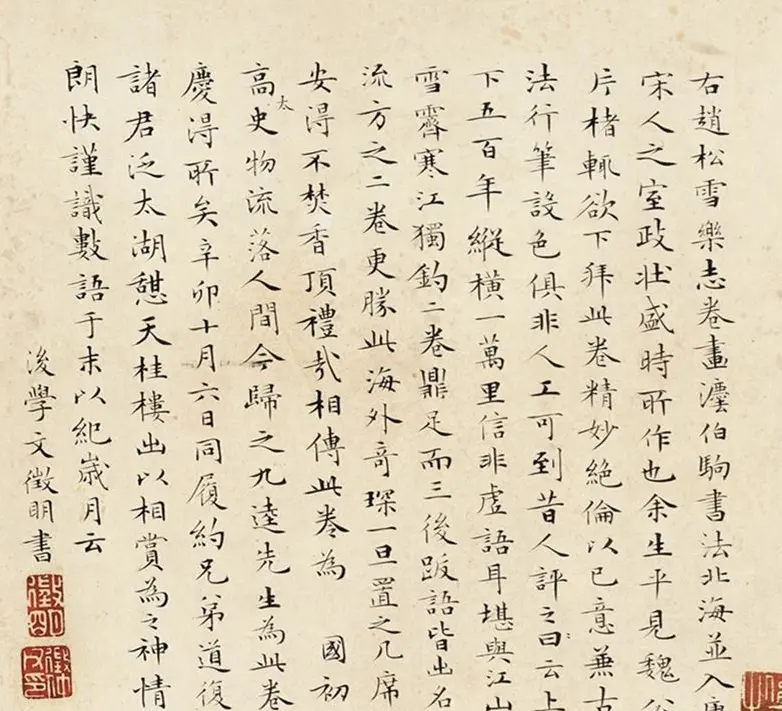 右趙松雪樂志卷畫灋伯駒書法北海並入唐
宋人之室政壯盛時所作也余生平見魏公
片楮輒欲下拜此卷精妙絕倫以己意兼古
法行筆設色俱非人工可到昔人評之曰云上
下五百年縱橫一萬里信非虛語耳堪與江山
雪霽寒江獨釣二卷鼎足而三後跋語皆出名
流方之二卷更勝此海外奇琛一旦置之几席
安得不焚香頂禮哉相傳此卷為 國初
高太史物流落人間今歸之九逵先生為此卷
慶得所矣辛卯十月六日同履約兄弟道復
諸君泛太湖憇天桂樓出以相賞為之神情
朗快謹識數語于末以紀歲月云
後學文徵明書
徵明
文徵明印